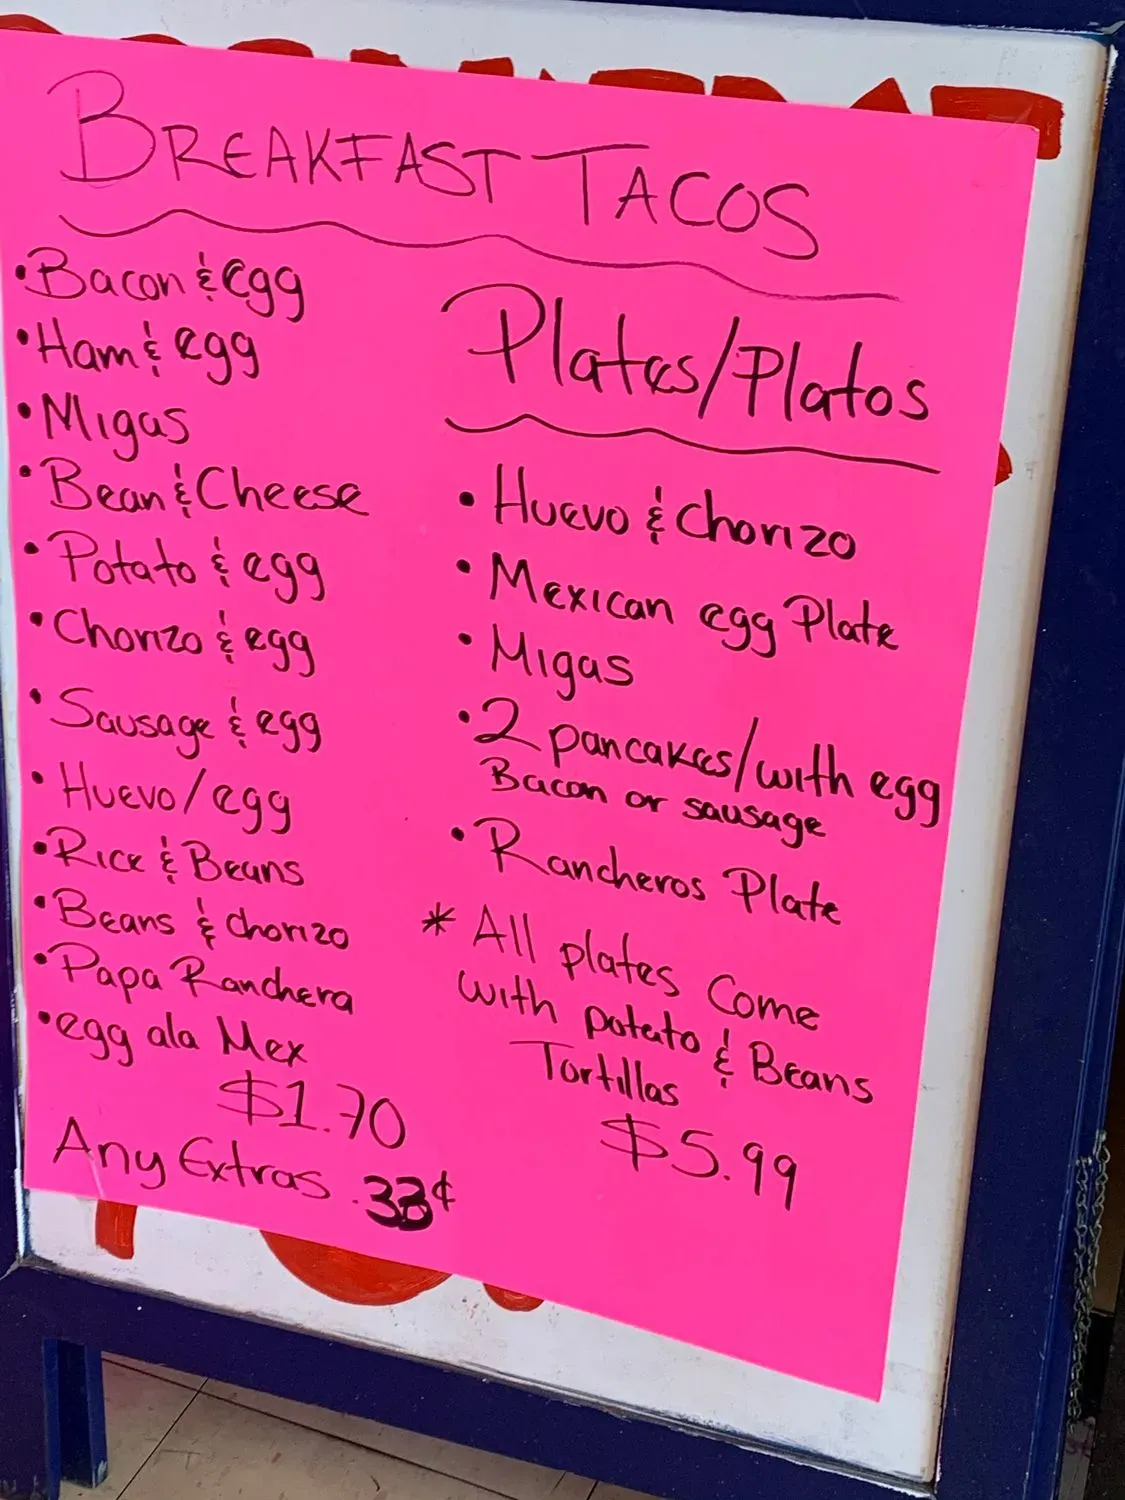 BREAKFAST TACOS
• Bacon & egg
• Ham & egg
• Migas
• Bean & Cheese
• Potato & egg
• Chorizo & egg
• Sausage & egg
• Huevo/egg
• Rice & Beans
• Beans & chorizo
• Papa Ranchera
• egg ala Mex
$1.70
Any Extras .33¢
Plates/Platos
• Huevo & Chorizo
• Mexican egg Plate
• Migas
• 2 pancakes/with egg
Bacon or sausage
• Rancheros Plate
* All plates Come
with potato & Beans
Tortillas
$5.99